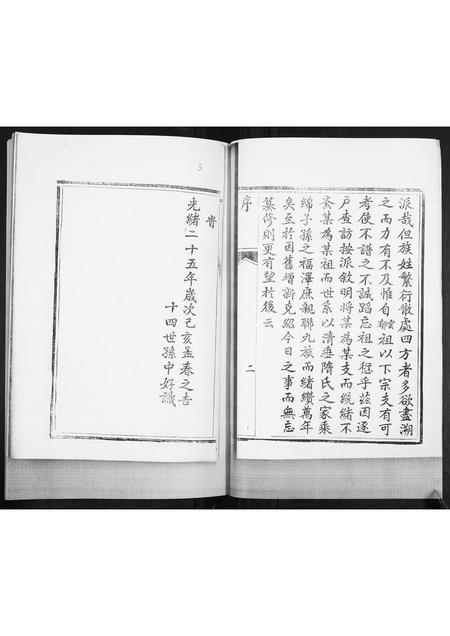 派哉但族姓繁衍散處四方者多欲盡溯
之而力有不及惟自祖以下宗支有可
考使不譜之不誠蹈忘祖之愆乎茲因逐
戶查訪按派敘明將某為某支而統緒不
紊某為某祖而世系以清垂隋氏之家乘
綿子孫之福澤庶親聯九族而緒纘萬年
矣至於因舊增新克紹今日之事而無忘
纂修則更有望於後云
序
二
3
旹
光緒二十五年歲次己亥孟春之吉
十四世孫中好識